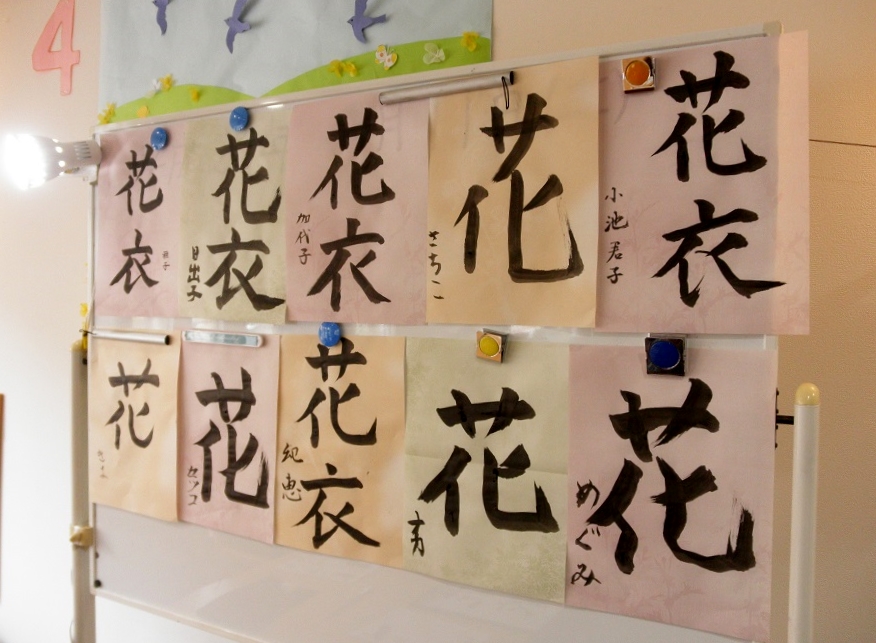 4
花衣
花衣
日出子
花衣
加代子
花
さちこ
花衣
小池君子
花
花
セツコ
花衣
紀恵
花
花
めぐみ